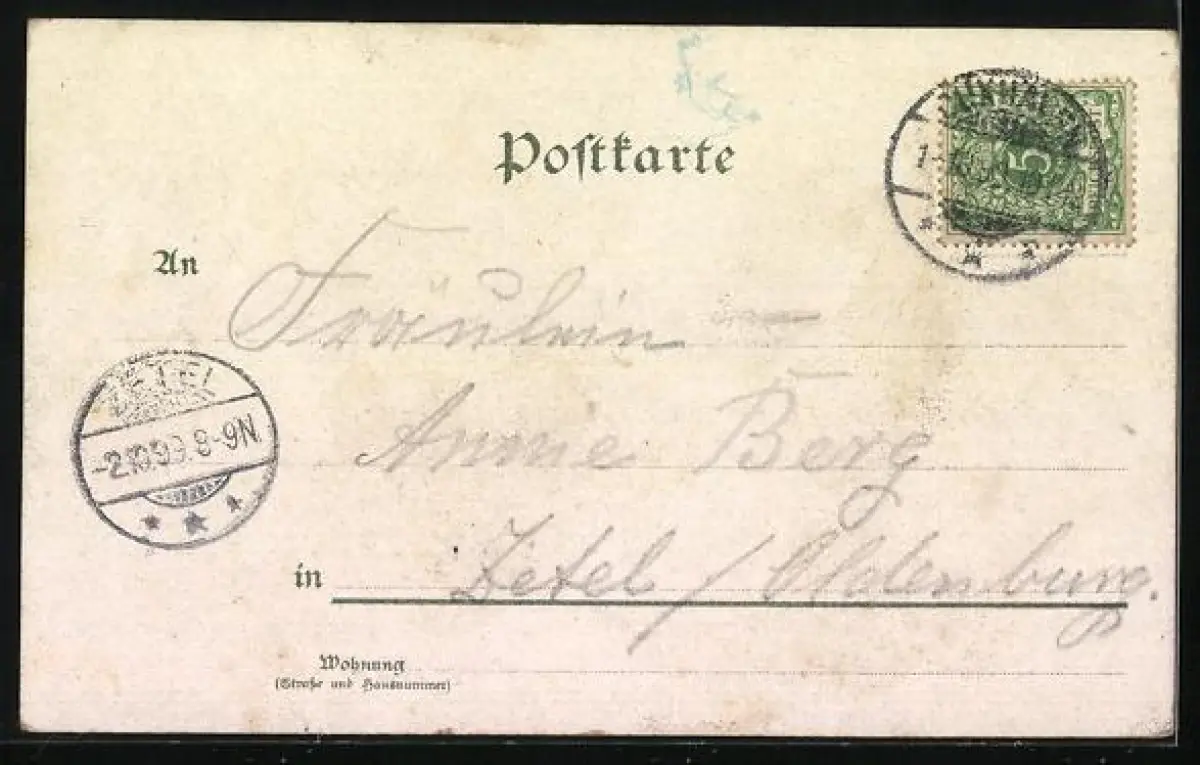 Postkarte
5
An
Fräulein
ZETEL
-2.10.99.8-9N.
Annie Berg
in
Zetel / Oldenburg.
Wohnung
(Straße und Hausnummer)